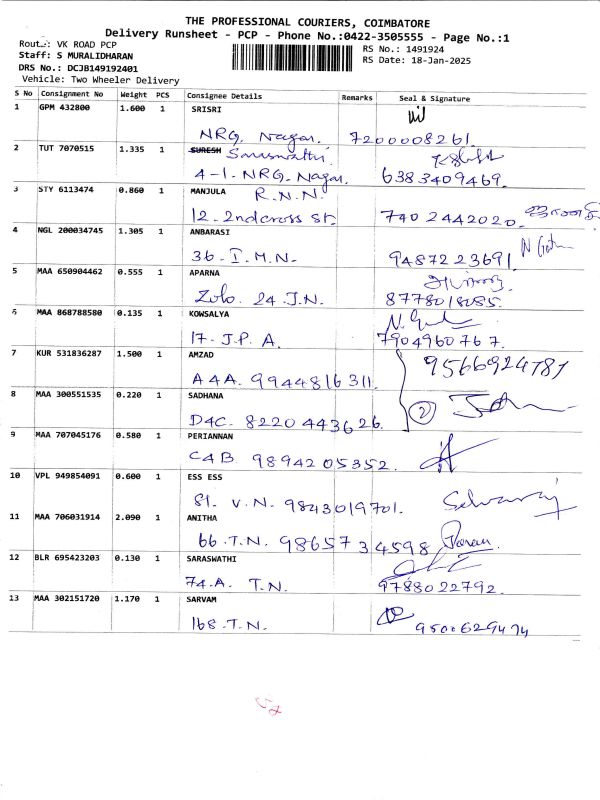 THE PROFESSIONAL COURIERS, COIMBATORE
Delivery Runsheet - PCP - Phone No.:0422-3505555 - Page No.:1
Route: VK ROAD PCP
Staff: S MURALIDHARAN
DRS No.: DCJB149192401
Vehicle: Two Wheeler Delivery
RS No.: 1491924
RS Date: 18-Jan-2025
S No Consignment No Weight PCS Consignee Details Remarks Seal & Signature
1 GPM 432800 1.600 1 SRISRI
NRG. Nagar. 7200008261.
2 TUT 7070515 1.335 1 SURESH Saraswathi
4-1. NRG. Nagar. 6383409469.
3 STY 6113474 0.860 1 MANJULA R.N.N.
12. 2nd cross st. 7402442020.
4 NGL 200034745 1.305 1 ANBARASI
36. I.M.N. 9487223691.
5 MAA 650904462 0.555 1 APARNA
Zolo. 24 J.N. 8778018085.
6 MAA 868788580 0.135 1 KOWSALYA
17. J.P.A. 7904960767.
7 KUR 531836287 1.500 1 AMZAD 9566924781
A4A. 9944816311.
8 MAA 300551535 0.220 1 SADHANA
D4C. 8220443626. 2
9 MAA 707045176 0.580 1 PERIANNAN
C4B 9894205352.
10 VPL 949854091 0.600 1 ESS ESS
81. V.N. 9843019701. Selvaraj
11 MAA 706031914 2.090 1 ANITHA
66. T.N. 9865734598
12 BLR 695423203 0.130 1 SARASWATHI
74.A. T.N. 9788022792.
13 MAA 302151720 1.170 1 SARVAM
168-T.N. 9500629474